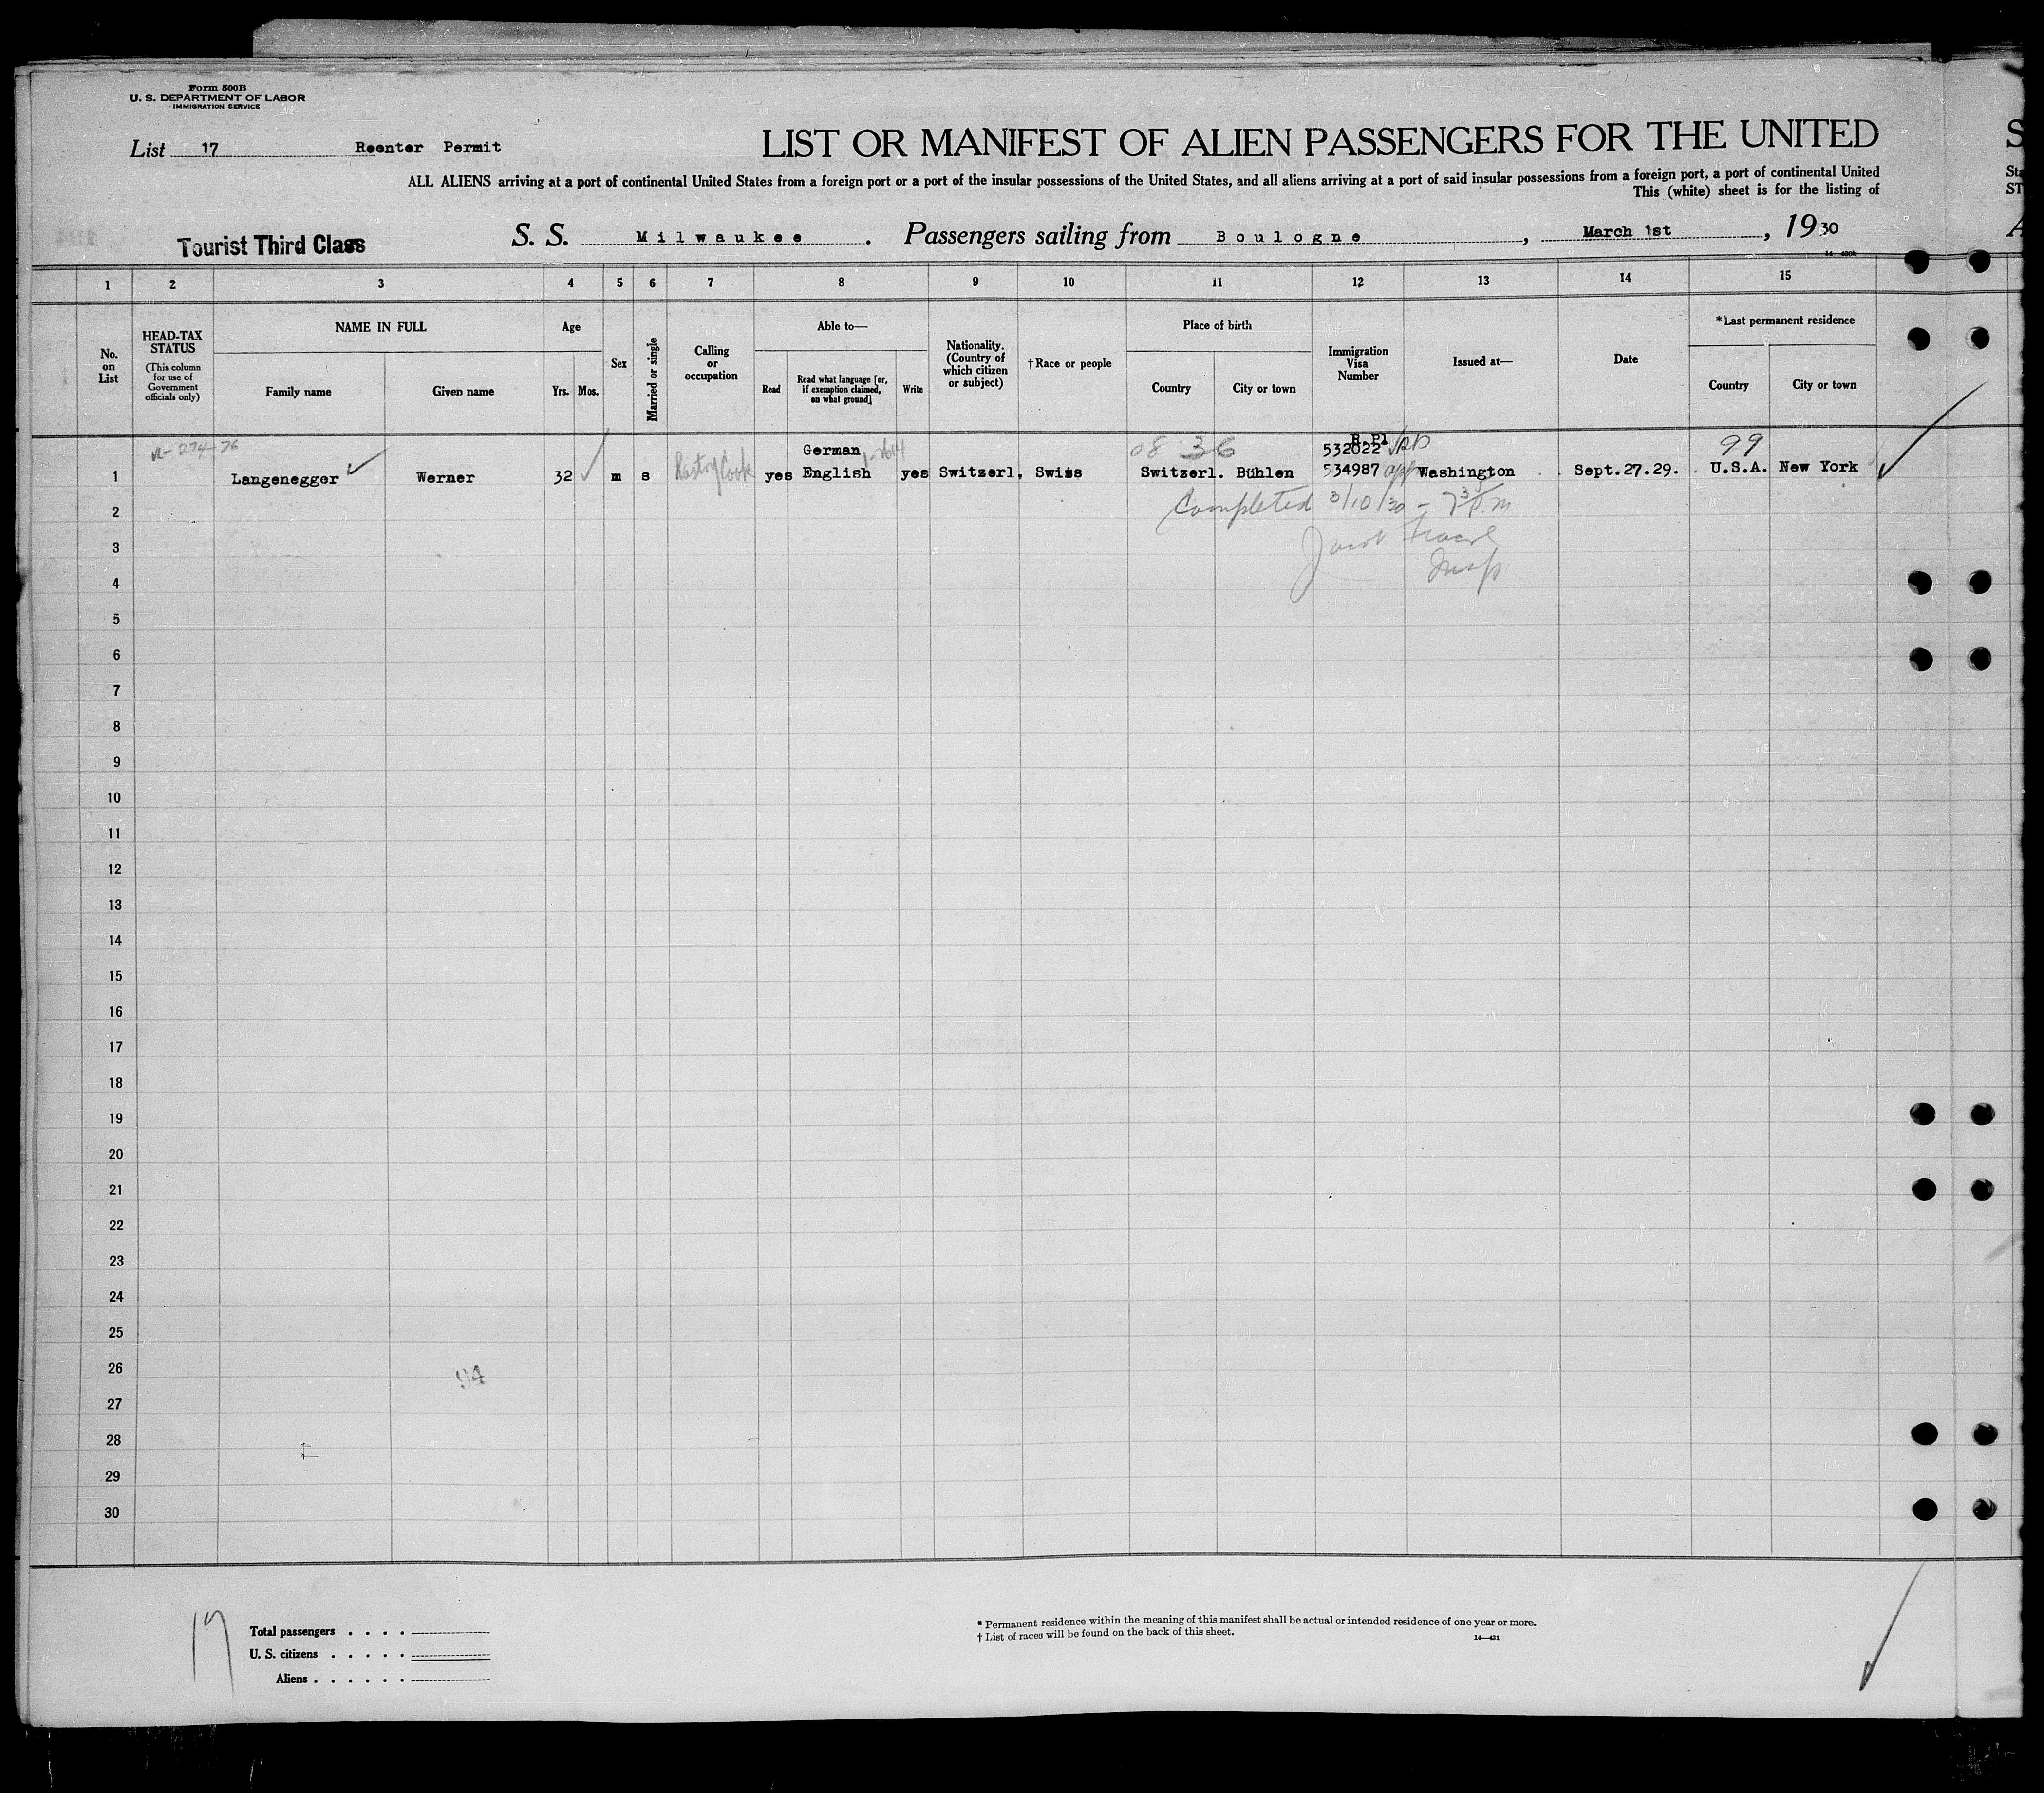 Form 500B
U. S. DEPARTMENT OF LABOR
IMMIGRATION SERVICE
List 17 Reenter Permit
LIST OR MANIFEST OF ALIEN PASSENGERS FOR THE UNITED
ALL ALIENS arriving at a port of continental United States from a foreign port or a port of the insular possessions of the United States, and all aliens arriving at a port of said insular possessions from a foreign port, a port of continental United
This (white) sheet is for the listing of
Tourist Third Class
S. S. Milwaukee . Passengers sailing from Boulogne , March 1st , 1930
1 2 3 4 5 6 7 8 9 10 11 12 13 14 15
No. on List
HEAD-TAX STATUS
(This column for use of Government officials only)
NAME IN FULL
Family name Given name
Age
Yrs. Mos.
Sex
Married or single
Calling or occupation
Able to—
Read
Read what language [or, if exemption claimed, on what ground]
Write
Nationality. (Country of which citizen or subject)
†Race or people
Place of birth
Country City or town
Immigration Visa Number
Issued at—
Date
*Last permanent residence
Country City or town
German 08 36 R.P1 532022 99
1 Langenegger Werner 32 m s Cook yes English yes Switzerl. Swiss Switzerl. Bühlen 534987 Washington Sept.27.29. U.S.A. New York
2 Completed 3/10/30 - 7 35 P.m
3
Insp
4
5
6
7
8
9
10
11
12
13
14
15
16
17
18
19
20
21
22
23
24
25
26
27
28
29
30
17
Total passengers
U. S. citizens
Aliens
* Permanent residence within the meaning of this manifest shall be actual or intended residence of one year or more.
† List of races will be found on the back of this sheet.
14—431